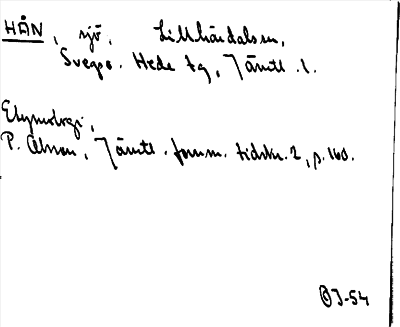 HÅN, sjö, Lillhärdals sn,
Svegs o. Hede tg, Jämtl. l.
Etymologi,
P. Olsson, Jämtl. fornm. tidskr. 2, s. 160.
OJ-54